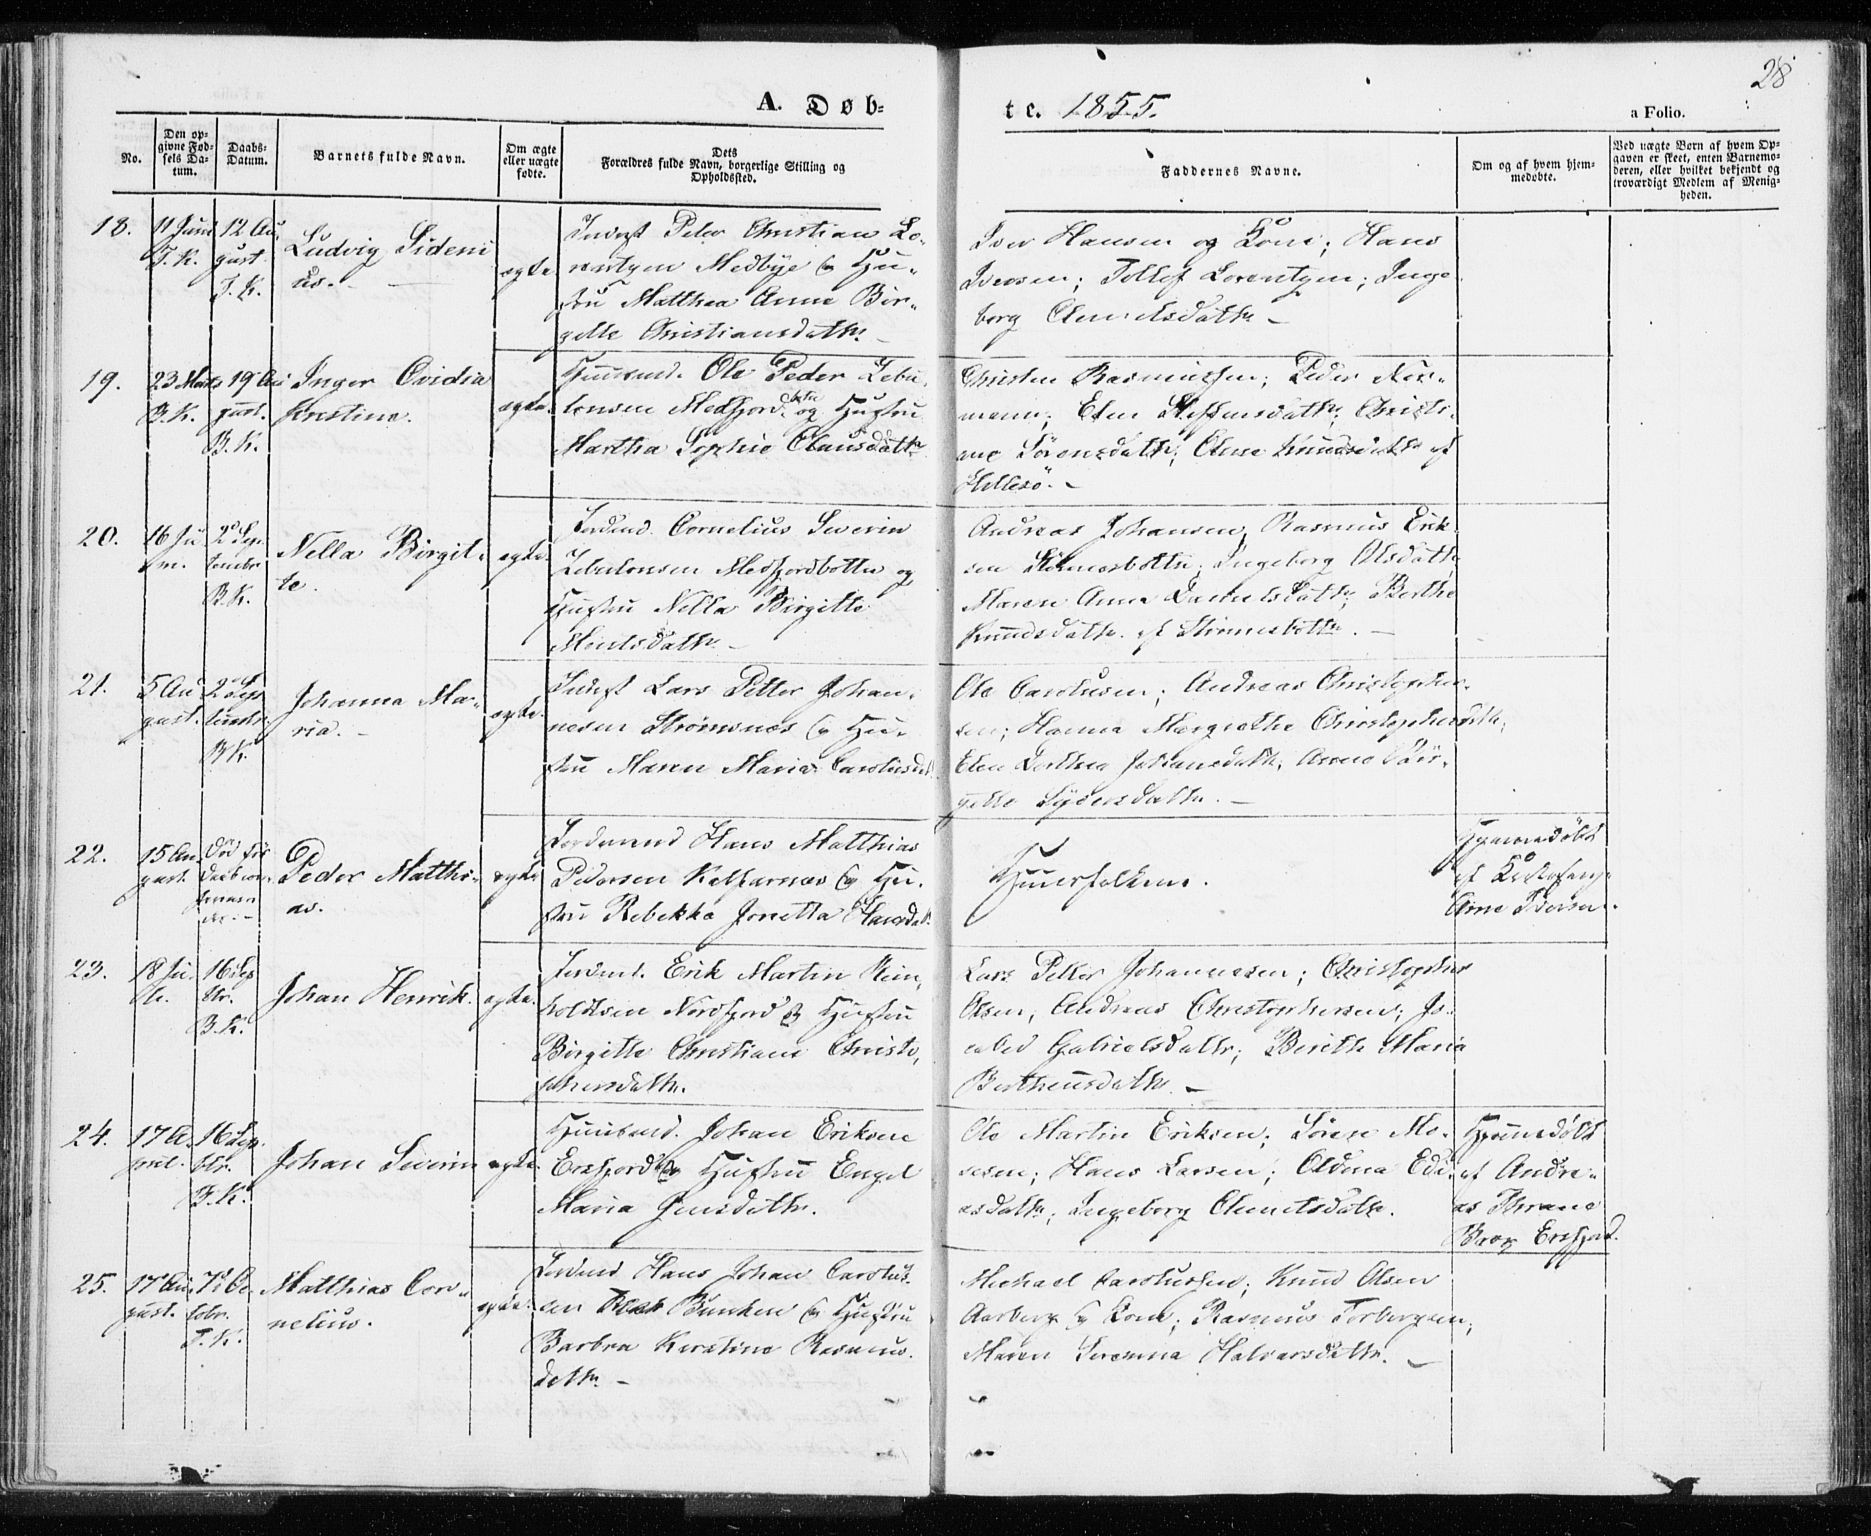 28
A. Døb-
te. 1855.
a Folio.
No.
Den op-
givne Fød-
sels Da-
tum.
Daabs-
Datum.
Barnets fulde Navn.
Om ægte
eller uægte
fødte.
Dets
Forældres fulde Navn, borgerlige Stilling og
Opholdssted.
Faddernes Navne.
Om og af hvem hjem-
medøbte.
Ved uægte Born af hvem Op-
gaven er skeet, enten Barnemo-
deren, eller hvilket bekjendt og
troværdigt Medlem af Menig-
heden.
18.
11 Juni
T. K.
12 Au-
gust
T. K.
Ludvig Sideni
us.
ægte
Inderst Peter Christian Lo-
rentzen Medbye og Hu-
stru Matthea Anne Bir-
gitte Christiansdattr.
Iver Hansen og Kone; Hans
Iversen; Tollef Lorentzen; Inge
borg Clemetsdattr
19.
23 Marts
B. K.
19 Au
gust.
B. K.
Inger Ovidia
Kristine.
ægte.
Huusmd. Ole Peder Zebu-
lonsen Medfjord og Hustru
Martha Sophie Clausdattr
Christen Rasmussen; Peder
mann; Elen Steffensdattr; Christi-
ane Sörensdattr; Knudsdattr af
Hellesö.
20.
16 Ju
ni.
2d Sep.
tembr
B. K.
Nella Birgit-
te.
ægte.
Jordmd. Cornelius Severin
Zebulonsen Medfjordbotten og
Hustru Nella Birgitte
Montsdattr
Andreas Johansen, Rasmus Erik
sen; Ingeborg Olsdattr
Maren Anna Danielsdattr; Berthe
Knudsdattr. af
21.
5 Au
gust.
2d Sep
tembr.
B. K.
Johanna Ma-
ria.
ægte.
Inderst Lars Petter Johan-
nesen Strømsnes og Hu-
stru Maren Maria Carolusdtr
Ole Carolusen; Andreas Christopher-
sen; Hanna Margrethe Christophersdttr;
Elen Dorthea Johansdattr, Anne Bir-
gitte Sjversdattr.
22.
15 Au
gust.
død før
Peder Matthi-
as.
ægte
Jordmand Hans Matthias
Pedersen Kalfarnes og Hu-
stru Rebekka Jonetta Hansdtr.
Huusfolkene.
Hjemmedøbt
af
Arne Iversen.
23.
18 Ju-
li.
16 Sep
tbr.
B. K.
Johan Henrik.
ægte.
Jordmd. Erik Martin Rein-
holdtsen Nordfjord og Hustru
Birgitte Christiane Christo-
phersdattr.
Lars Petter Johannesen; Christopher
Olsen; Andreas Christophersen; Ja-
Gabrielsdattr; Berith Maria
Bertheusdattr
24.
17 A-
pril.
16 Sep.
tbr.
B. K.
Johan Severin
ægte.
Huusmd. Johan Eriksen
Ersfjord og Hustru Engel
Maria Jensdattr.
Ole Martin Eriksen; Sören Mo-
sesen; Hans Larsen; Oldina Edi-
asdattr; Ingeborg Clemetsdattr.
Hjemmedøbt
af Andre-
as Thrane
Brox Ersfjord.
25.
17 Au-
gust.
7d Oc-
tobr.
T. K.
Matthias Cor-
nelius.
ægte.
Jordmd Hans Johan Carolus-
sen Bunken og Hustru
Barbra Kerstine Rasmus-
dattr.
Michael Carolussen; Knud Olsen
Aarberg og Kone; Rasmus Torbergsen;
Maren Halvarsdattr.